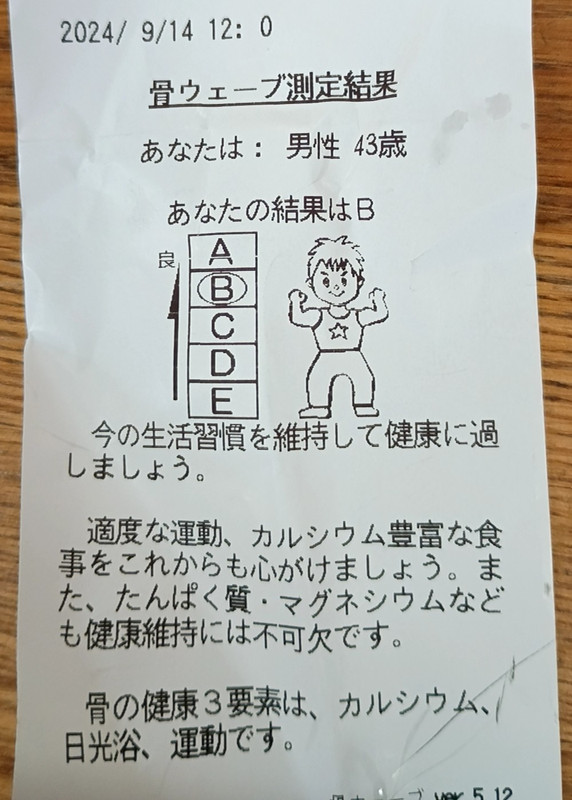 2024/ 9/14 12: 0
骨ウェーブ測定結果
あなたは： 男性 43歳
あなたの結果はＢ
良
A
B
C
D
E
今の生活習慣を維持して健康に過
しましょう。
適度な運動、カルシウム豊富な食
事をこれからも心がけましょう。ま
た、たんぱく質・マグネシウムなど
も健康維持には不可欠です。
骨の健康３要素は、カルシウム、
日光浴、運動です。
骨ウェーブ ver 5.12